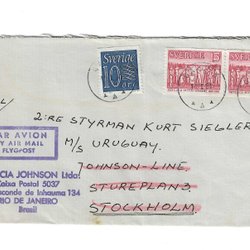 Sverige
10
öre
SVERIGE 15
2:RE STYRMAN KURT SIEGLER
M/S URUGUAY.
JOHNSON-LINE,
STUREPLAN3
STOCKHOLM
PAR AVION
BY AIR MAIL
FLYGPOST
CIA JOHNSON Ltda:
Caixa Postal 5037
sconde de Inhauma 134
RIO DE JANEIRO
Brasil